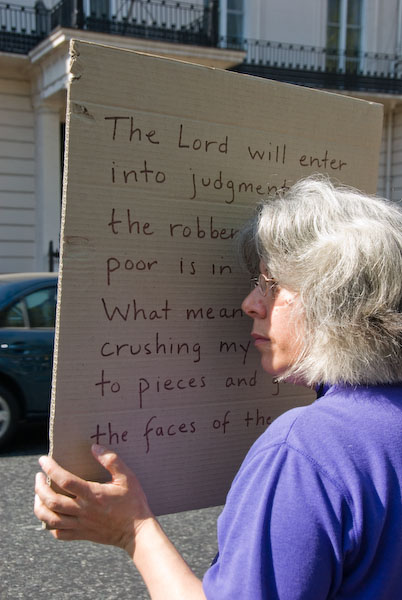 The Lord will enter
into judgment
the
poor is in
What
crushing my
to pieces and
the faces of the